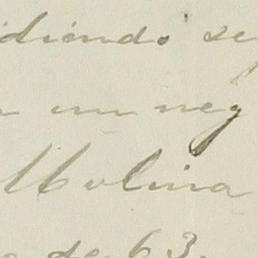 diendo se
un neg
Molina
de 63.